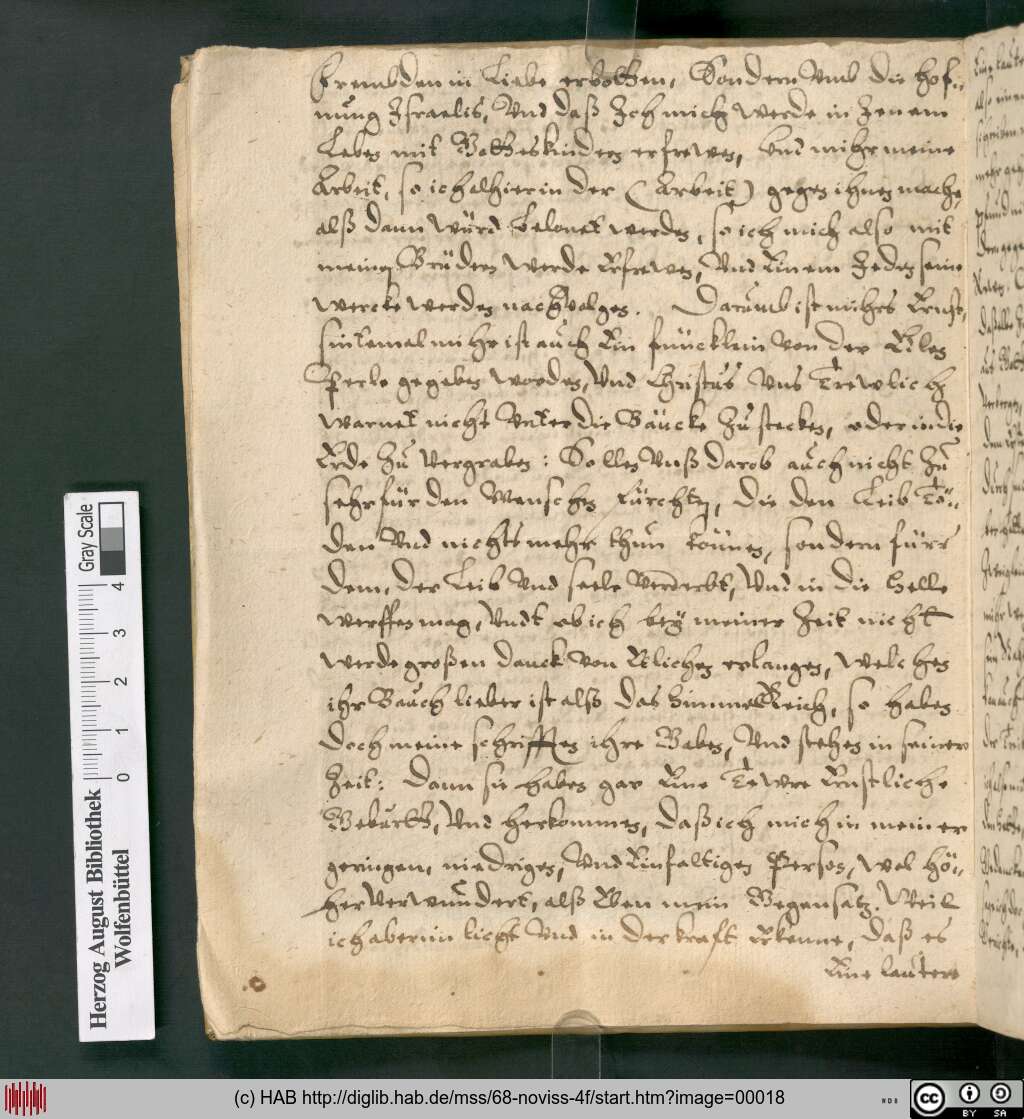 frembden in Liebe erbotten, Sondern Umb die hof-
nung Israelis, Und daß Ich mich werde in Jenem
Leben mit Gotteskindern erfrewen, Und mihr meine
Arbeit, so ich alhier in der (Arbeit) gegen ihnen mache,
alß dann würd belonet werden, so ich mich also mit
meinen Brüdern werde Erfrewen, Und Einem Jeden seine
wercke werden nachvolgen. Darumb ist mihrs Ernst,
sintemal mihr ist auch Ein füncklein von der Edlen
Perle gegeben worden, Und Christus Uns Trewlich
warnet nicht Unter die Bäncke Zu stecken, oder in die
Erde Zu Vergraben: Sollen Unß darob auch nicht Zu
sehr für den Menschen fürchten, die den Leib Tö-
den Und nichts mehr thun können, sondern fürr
dem, der Leib Und seele Verderbt, Und in die Helle
werffen mag, Undt ob ich bey meiner Zeit nicht
werde großen danck von Etlichen erlangen, welchen
ihr Bauch lieber ist alß das Himmel Reich, so haben
doch meine schrifften ihre Gaben, Und stehen in seiner
Zeit: dann sie haben gar Eine Tewre Ernstliche
Geburtt, Und herkommen, daß ich mich in meiner
geringen, niedrigen, Und Einfaltigen Person, wol hö-
her Verwundert, alß Eben mein Gegensatz. Weil
ich aber im licht Und in der kraft Erkenne, daß es
Eine lautere
Herzog August Bibliothek
Wolfenbüttel
0 1 2 3 4
Gray Scale
(c) HAB http://diglib.hab.de/mss/68-noviss-4f/start.htm?image=00018
WDB
CC BY SA